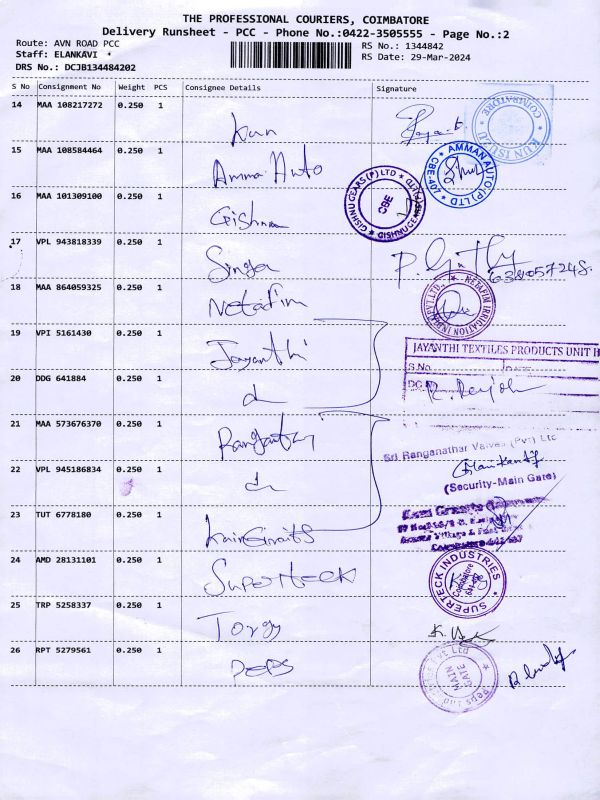 THE PROFESSIONAL COURIERS, COIMBATORE
Delivery Runsheet - PCC - Phone No.:0422-3505555 - Page No.:2
Route: AVN ROAD PCC
RS No.: 1344842
Staff: ELANKAVI *
RS Date: 29-Mar-2024
DRS No.: DCJB134484202
S No Consignment No Weight PCS Consignee Details Signature
14 MAA 108217272 0.250 1
Kun
COIMBATORE
15 MAA 108584464 0.250 1
Amma Auto
AMMAN AUTO (P) LTD
16 MAA 101309100 0.250 1
Gishnu
GISHNU GEARS (P) LTD
CBE
17 VPL 943818339 0.250 1
Singa
18 MAA 864059325 0.250 1
Netafim
NETAFIM IRRIGATION INDIA PVT LTD.,
19 VPI 5161430 0.250 1
Jayanthi
JAYANTHI TEXTILES PRODUCTS UNIT II
S.No.
20 DDG 641884 0.250 1
21 MAA 573676370 0.250 1
Ranganthar
Sri Ranganathar Valves (Pvt) Ltd
22 VPL 945186834 0.250 1
(Security-Main Gate)
23 TUT 6778180 0.250 1
24 AMD 28131101 0.250 1
Superteck
SUPERTECK INDUSTRIES
Coimbatore
25 TRP 5258337 0.250 1
Torgy
26 RPT 5279561 0.250 1
Peps
MAIN
GATE